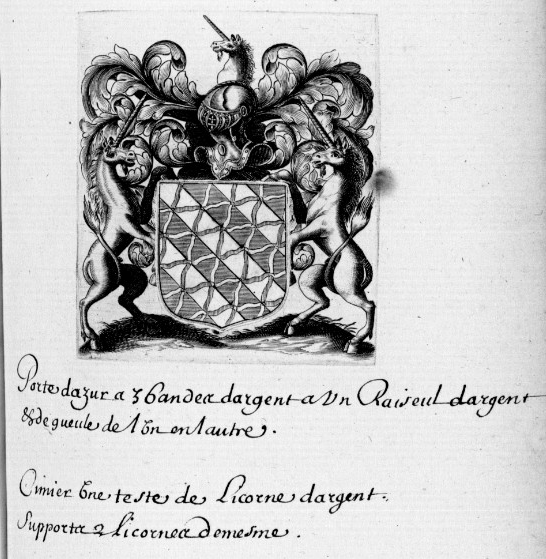 Porte dazur a 3 bandes dargent a Vn Raiseul dargent
& de gueule de l'un en l'autre.
Cimier Vne teste de Licorne dargent.
Supports 2 licornes demesme.